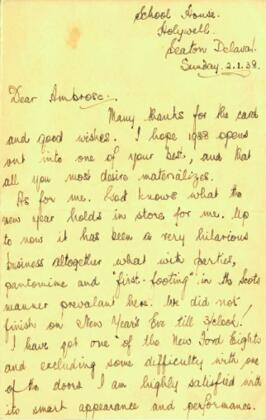 School House.
Holywell.
Seaton Delaval.
Sunday. 2.1.38.
Dear Ambrose,
Many thanks for the card
and good wishes. I hope 1938 opens
out into one of your best, and that
all you most desire materializes.
As for me. God knows what the
new year holds in store for me. Up
to now it has been a very hilarious
business altogether what with parties,
pantomine and "first-footing" in the Scots
manner prevalant here. We did not
finish on New Year's Eve till 3o'clock!
I have got one of the New Ford Eights
and excluding some difficulty with one
of the doors I am highly satisfied with
its smart appearance and performance.